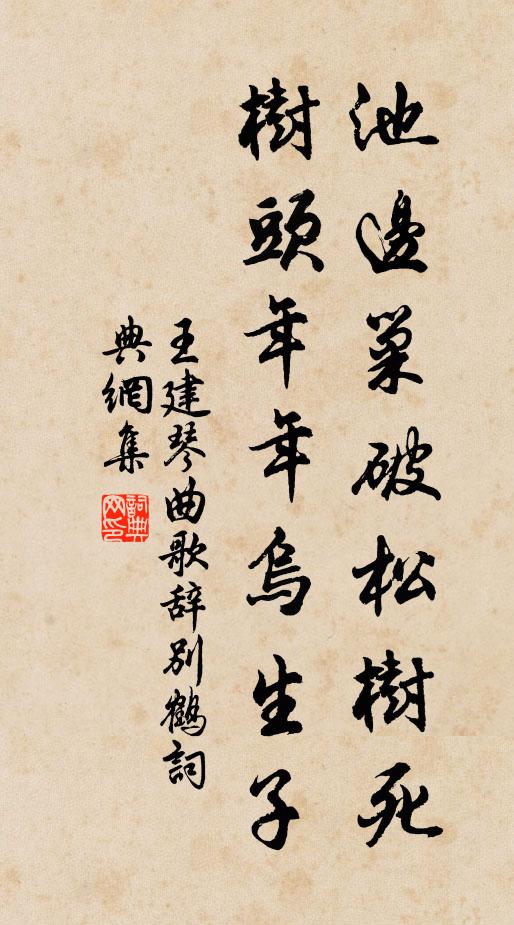 池邊巢破松樹死
樹頭年年烏生子
王建琴曲歌辞别鶴詞
典網集
詞典网印